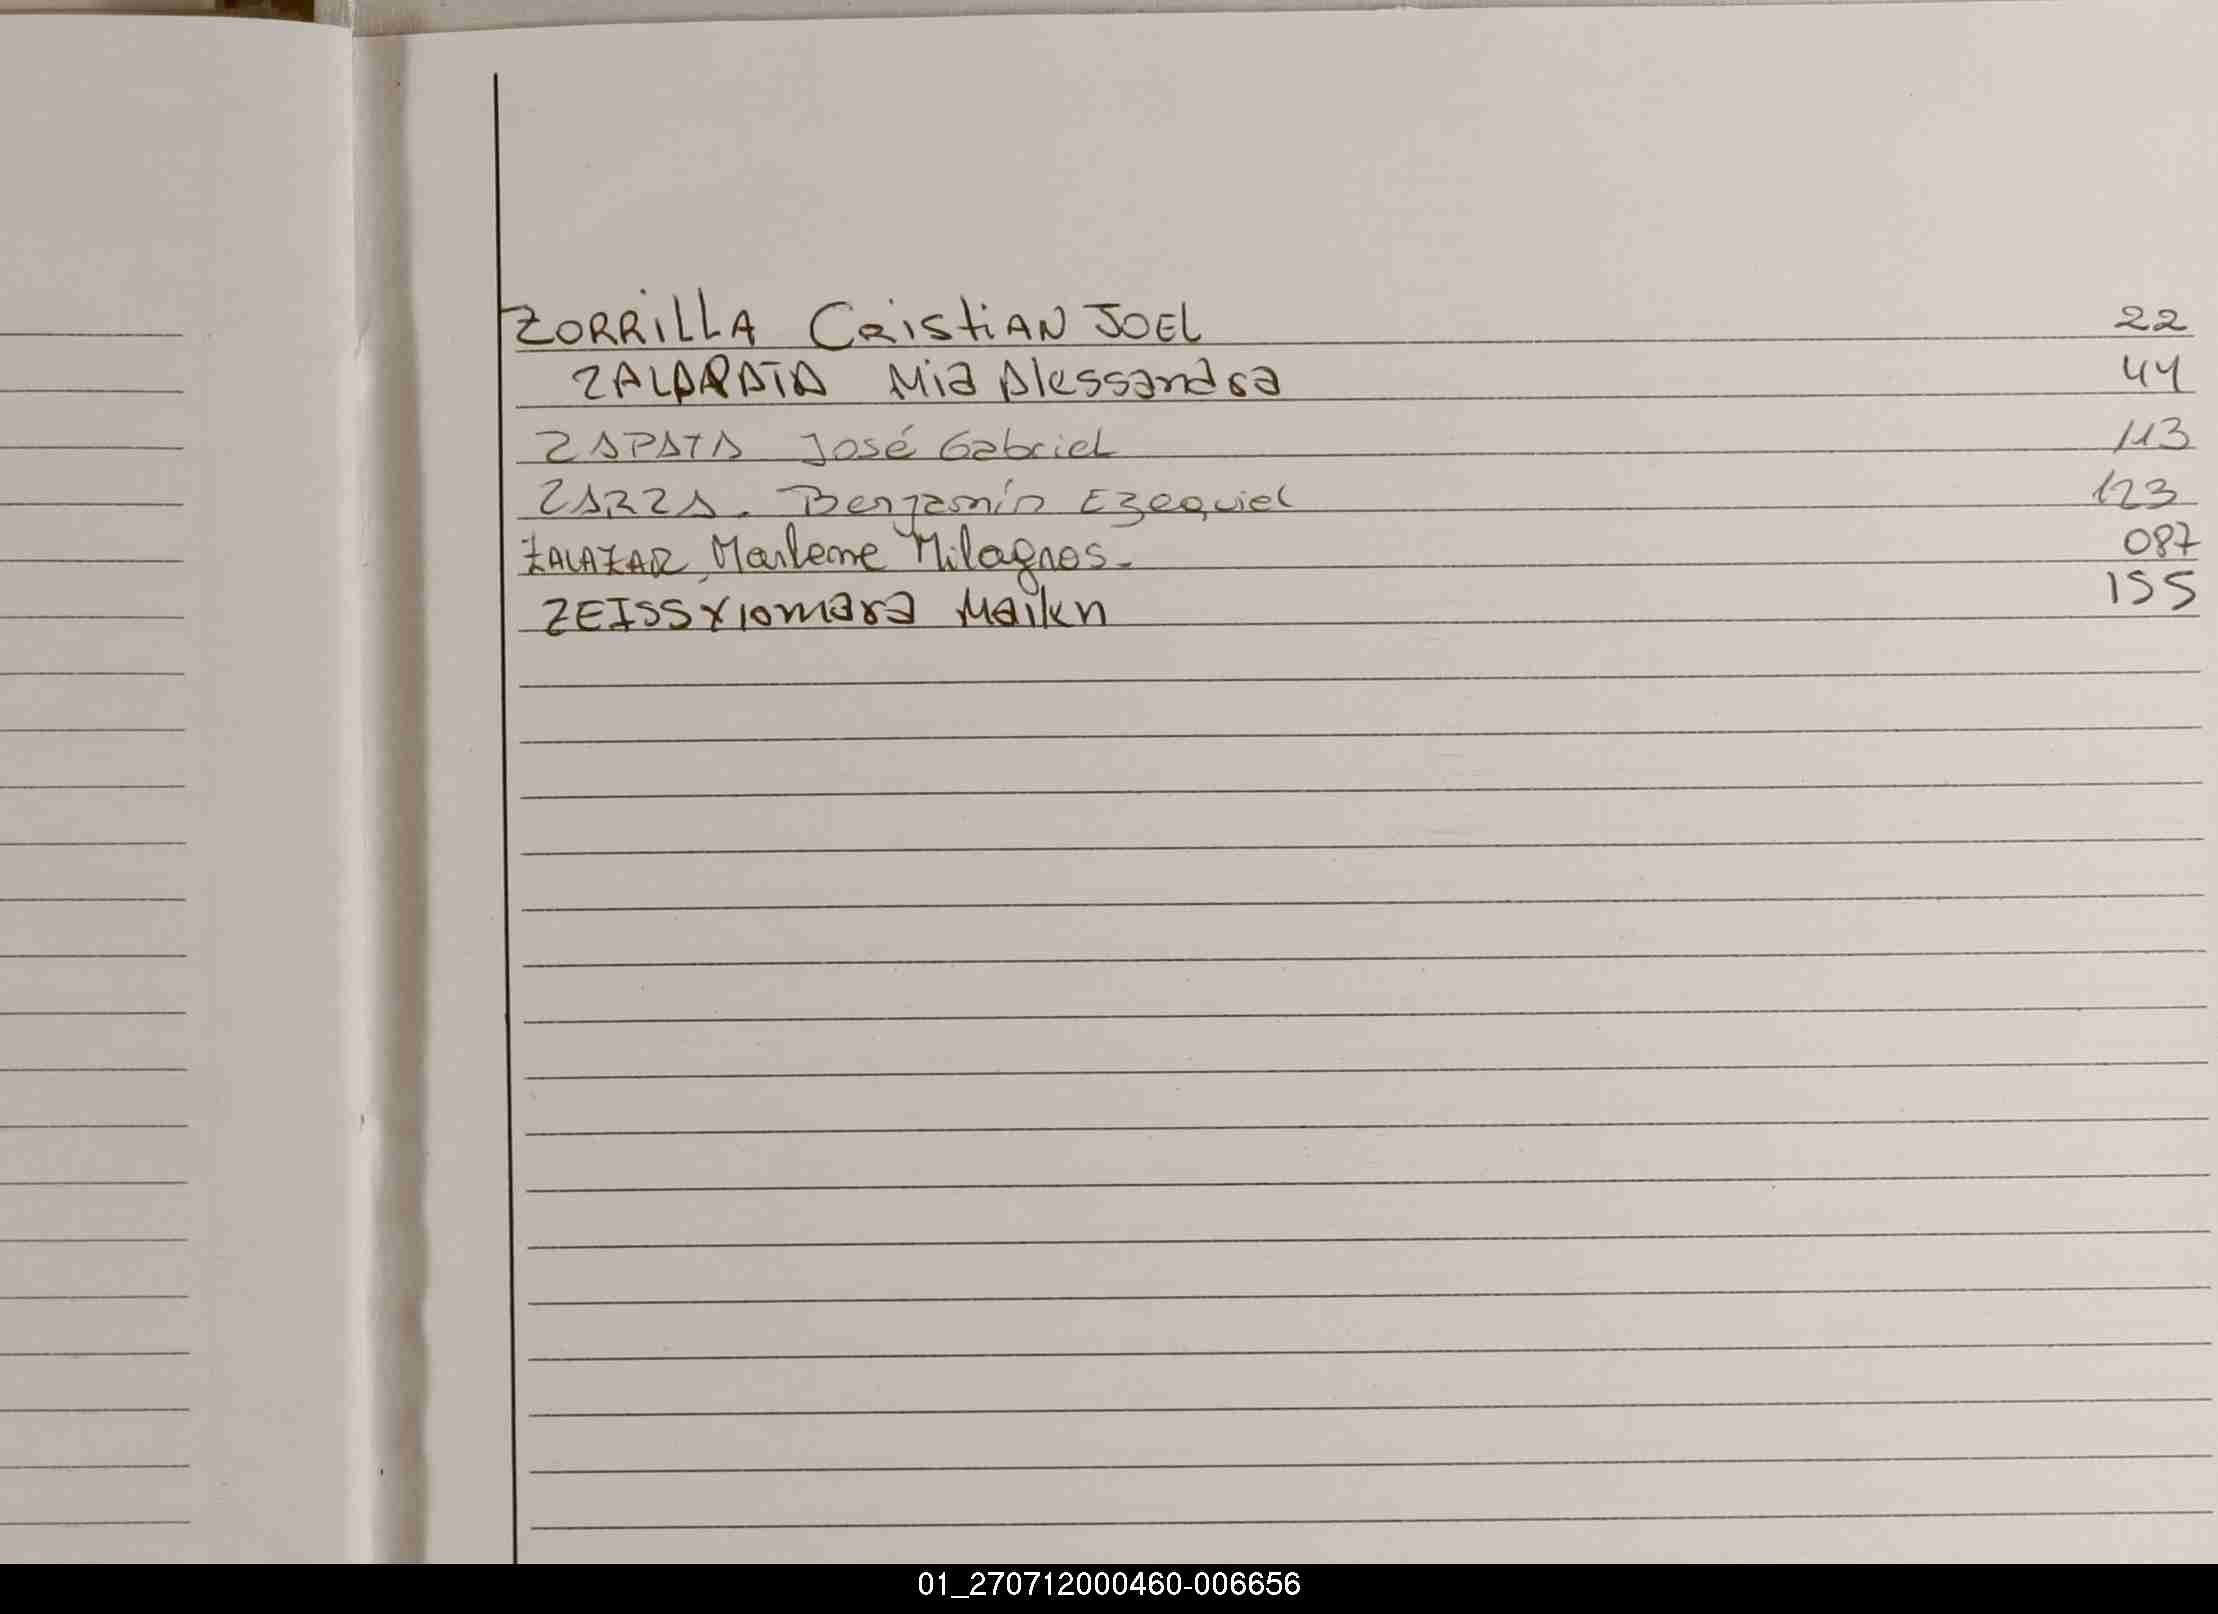 ZORRILLA Cristian JOEL 22
Mia Alessandra 44
ZAPATA José Gabriel 113
ZARZA. Benjamín Ezequiel 123
ZALAZAR, Marlene Milagros. 087
ZEISS Xiomara Mailen 155
01_270712000460-006656